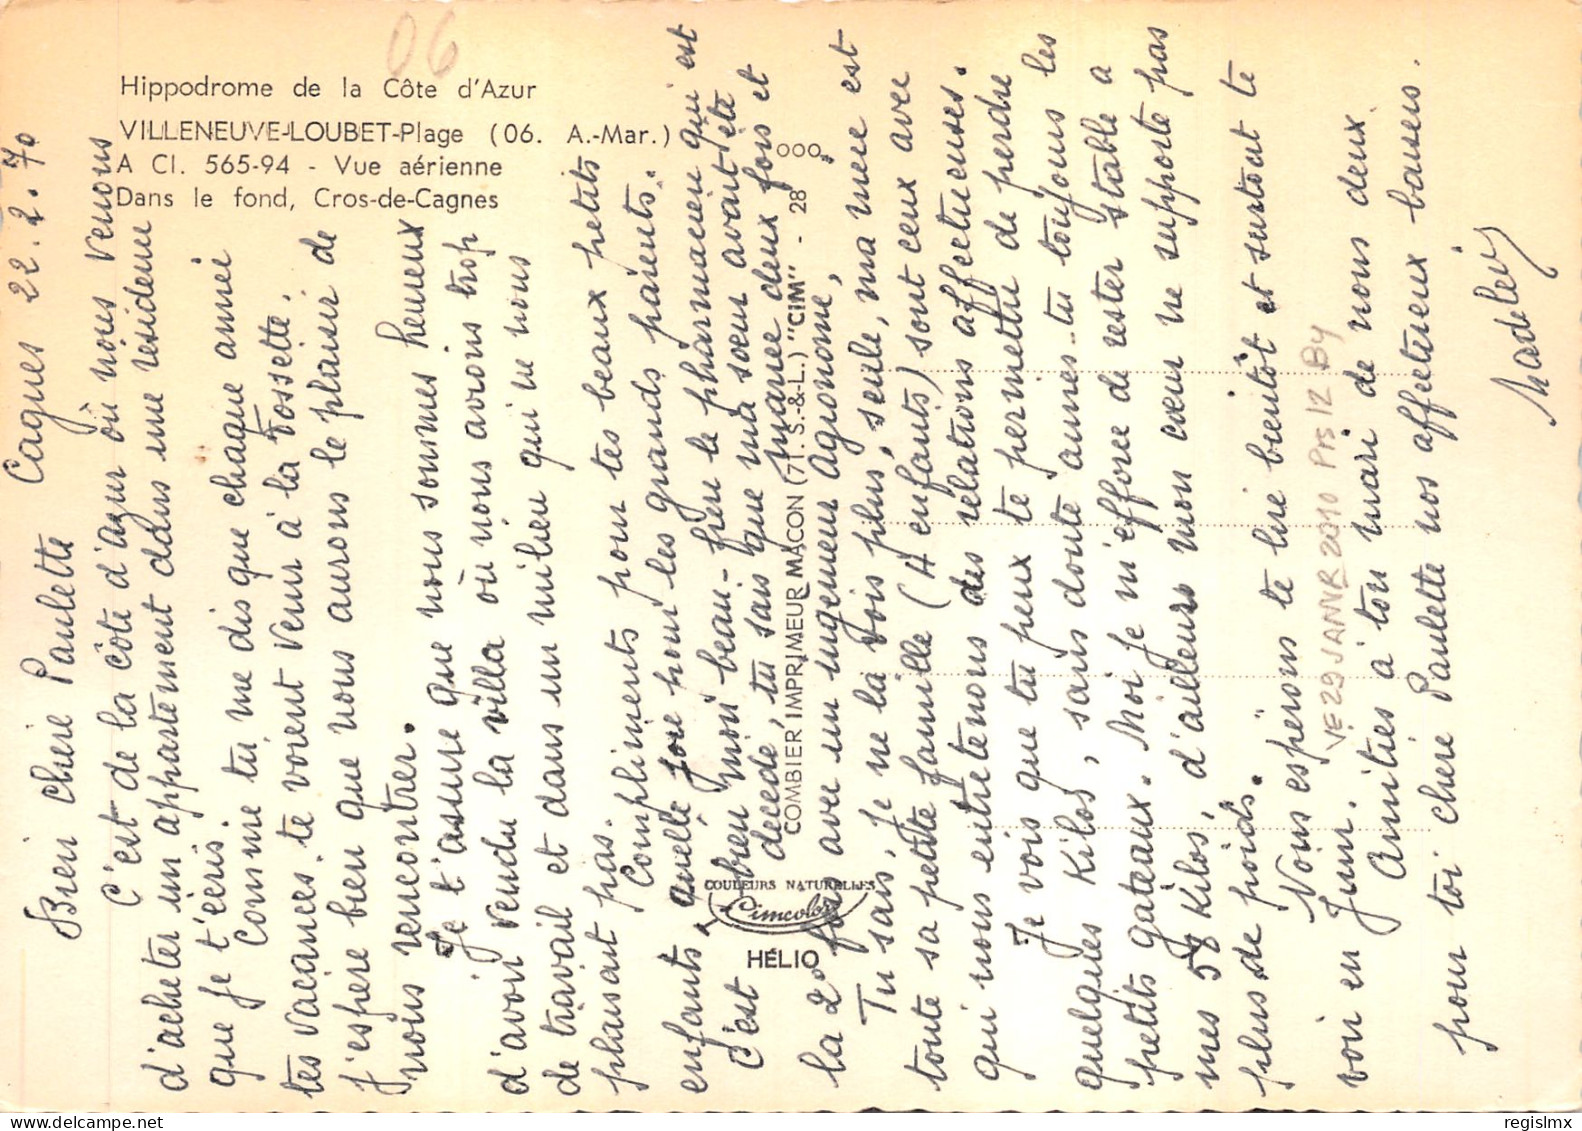 Hippodrome de la Côte d'Azur
VILLENEUVE-LOUBET-Plage (06. A.-Mar.)
A Cl. 565-94 - Vue aérienne
Dans le fond, Cros-de-Cagnes
06
COMBIER IMPRIMEUR MACON (71. S.-&-L.) "CIM" - 28
COULEURS NATURELLES
Cimcolor
HÉLIO
Cagnes 22.2.70
Bien chère Paulette
C'est de la côte d'azur où nous venons
d'acheter un appartement dans une résidence
que je t'écris
Comme tu me dis que chaque année
tes vacances te voient venir à la Fossette.
J'espère bien que nous aurons le plaisir de
nous rencontrer.
Je t'assure que nous sommes heureux
d'avoir vendu la villa où nous avions trop
de travail et dans un milieu qui ne nous
plaisait pas.
Compliments pour tes beaux petits
enfants quelle joie pour les grands parents.
C'est bien mon beau-frère le pharmacien qui est
décédé, tu sais que ma soeur avait été
mariée deux fois et
la 2° fois avec un ingénieur agronome,
Tu sais, je ne la vois plus, seule, ma mère est
toute sa petite famille (4 enfants) sont ceux avec
qui nous entretenons des relations affectueuses.
Je vois que tu peux te permettre de perdre
quelques Kilos, sans doute aimes-tu toujours les
petits gateaux. Moi je m'efforce de rester stable à
mes 58 Kilos, d'ailleurs mon coeur ne supporte pas
plus de poids.
Nous espérons te lire bientôt et surtout te
voir en Juin.
Amitiés à ton mari de nous deux
pour toi chère Paulette nos affectueux baisers.
VE 29 JANVR 2010 Prs 12 By